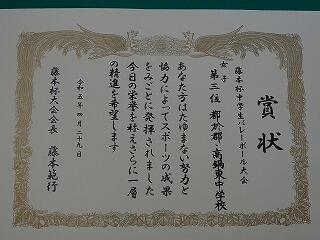 賞状
藤本杯中学生バレーボール大会
女子
第三位 都於郡・高鍋東中学校
あなた方はたゆまない努力と
協力によってスポーツの成果
をみごとに発揮されました
今日の栄誉を称えさらに一層
の精進を希望します
令和五年四月二十九日
藤本杯大会会長 藤本範行